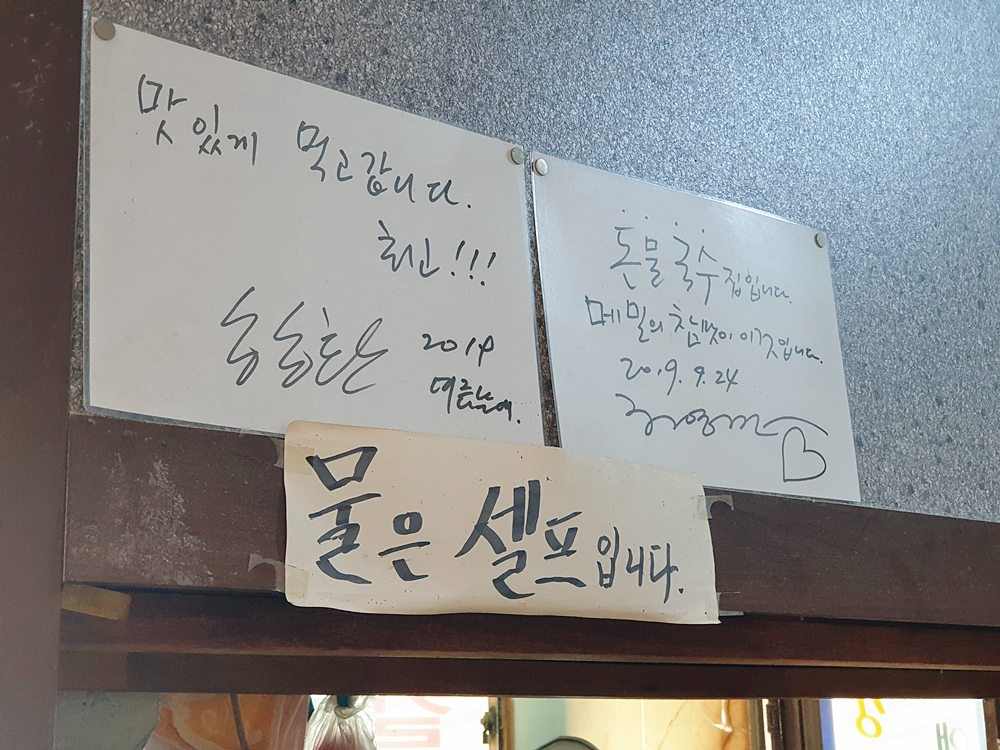 맛있게 먹고갑니다.
최고!!!
송승환 2014
여름날에.
돈물국수집입니다.
메밀의 참맛이 이것입니다.
2019. 9. 24
물은 셀프입니다.